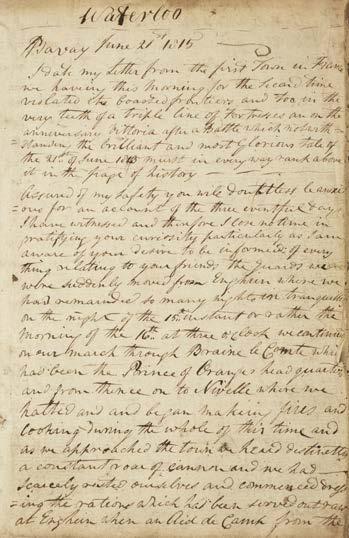 Waterloo
Bavay June 21st 1815
I date my Letter from the first Town in France
we having this Morning for the second time
violated the boasted frontiers and too in the
very teeth of a triple line of Fortresses an on the
anniversary Vittoria after a battle which notwith
=standing the brilliant and most Glorious tale of
the 21st of June 1813 must in every way rank above
it in the page of history
Assured of my safety you will doubtless be anxi
ous for an account of the three eventful days
I have witnessed and therefore I lose no time in
gratifying your curiosity particularly as I am
aware of your desire to be informed of every
thing relating to your friends the Guards we
were suddenly moved from Enghein where we
had remained so many nights in tranquility
on the night of the 15th instant or rather the
morning of the 16th at three o'Clock we continued
on our march through Braine le Comte which
had been the Prince of Orange head quarters
and from thence on to Nivelle where we
halted and and began making fires and
cooking during the whole of this time and
as we approached the town we heard distinctly
a constant roar of cannon and we had
scarcely rested ourselves and commenced dress
=ing the rations which has been served out
at Enghein when an Aid de Camp from the